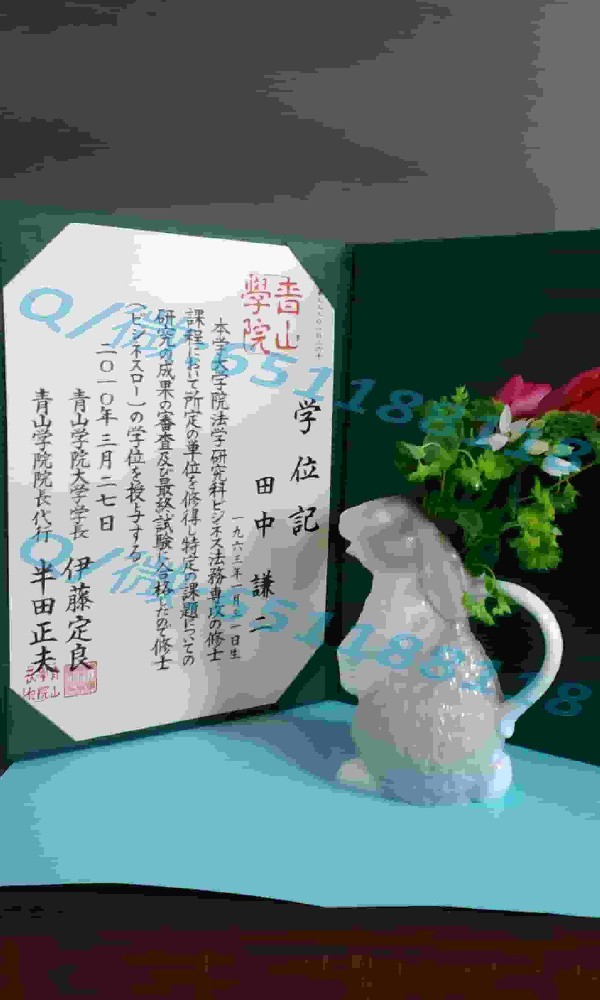 青山
學院
学位記
田中謙二
一九六三年一月三一日生
本学大学院法学研究科ビジネス法務専攻の修士
課程において所定の単位を修得し特定の課題についての
研究の成果の審査及び最終試験に合格したので修士
(ビジネスロー)の学位を授与する
二〇一〇年三月二七日
青山学院大学学長 伊藤定良
青山学院院長代行 半田正夫
Q/微:651188218
Q/微:651188218